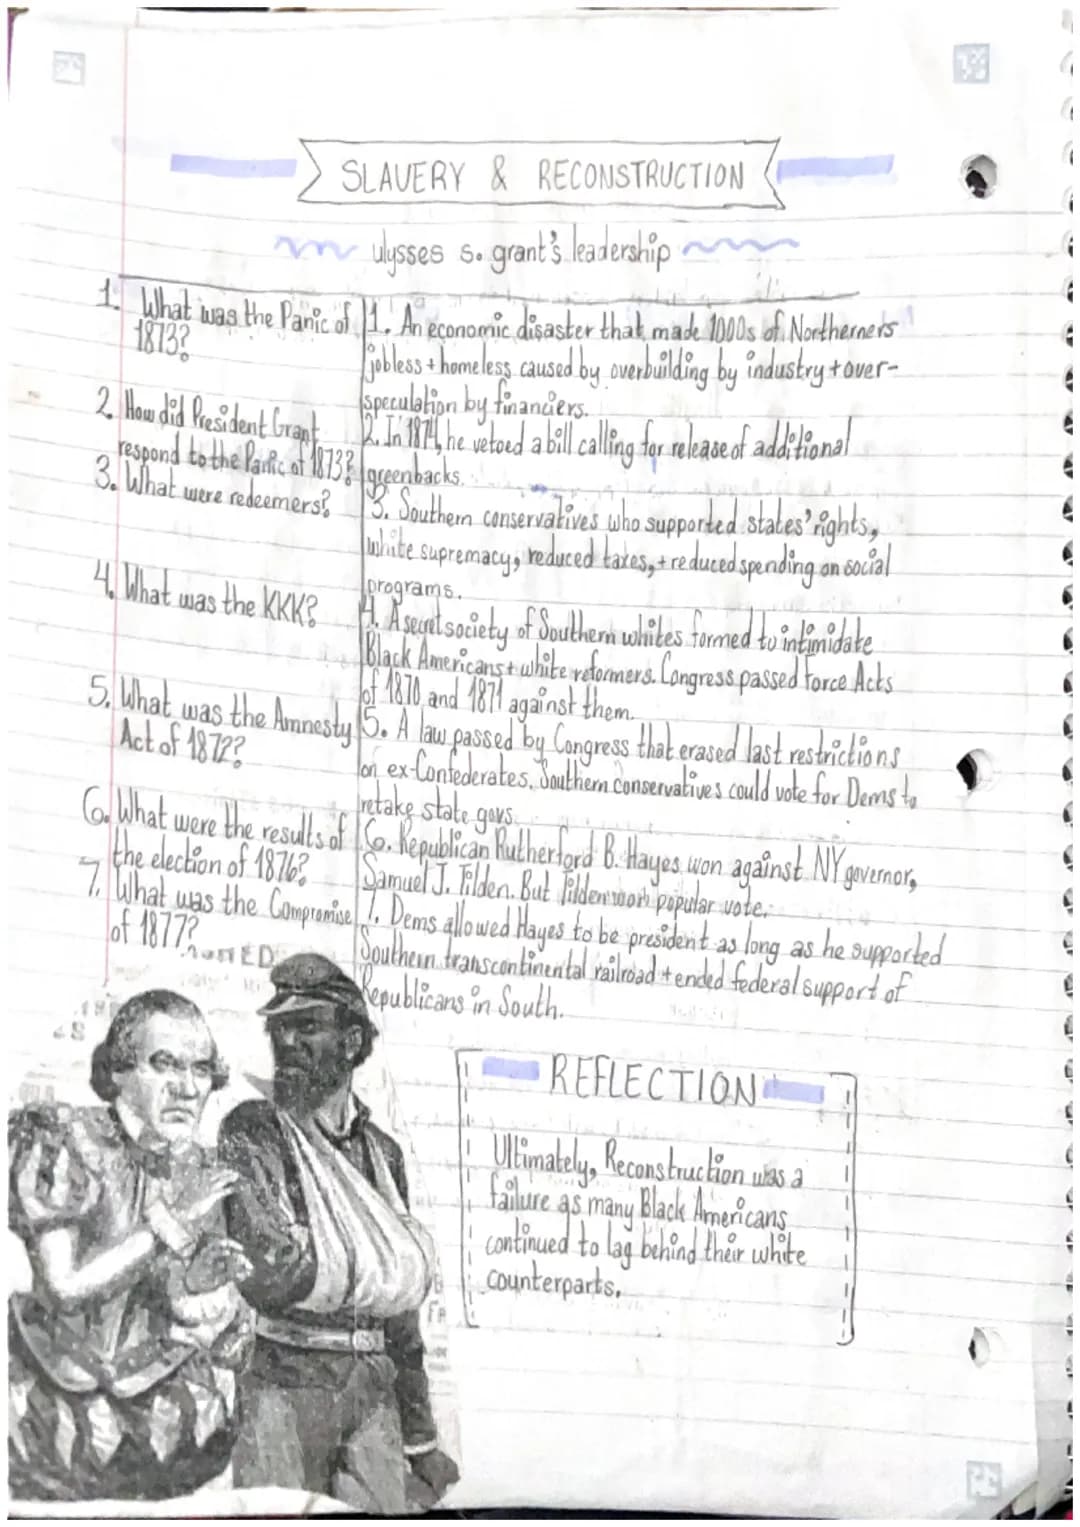 SLAVERY & RECONSTRUCTION
ulysses s. grant's leadership
1. What was the Panic of
1873?
1. An economic disaster that made 1000s of Northerners
jobless + homeless caused by overbuilding by industry + over-
speculation by financiers.
2. How did President Grant
respond to the Panic of 1873?
2. In 1874, he vetoed a bill calling for release of additional
greenbacks.
3. What were redeemers?
3. Southern conservatives who supported states' rights,
white supremacy, reduced taxes, + reduced spending on social
programs.
4. What was the KKK?
4. A secret society of Southern whites formed to intimidate
Black Americans + white reformers. Congress passed Force Acts
of 1870 and 1871 against them.
5. What was the Amnesty
Act of 1872?
5. A law passed by Congress that erased last restrictions
on ex-Confederates. Southern conservatives could vote for Dems to
retake state govs.
6. What were the results of
the election of 1876?
6. Republican Rutherford B. Hayes won against NY governor,
Samuel J. Tilden. But Tilden won popular vote.
7. What was the Compromise
of 1877?
7. Dems allowed Hayes to be president as long as he supported
Southern transcontinental railroad + ended federal support of
Republicans in South.
REFLECTION
Ultimately, Reconstruction was a
failure as many Black Americans
continued to lag behind their white
counterparts.